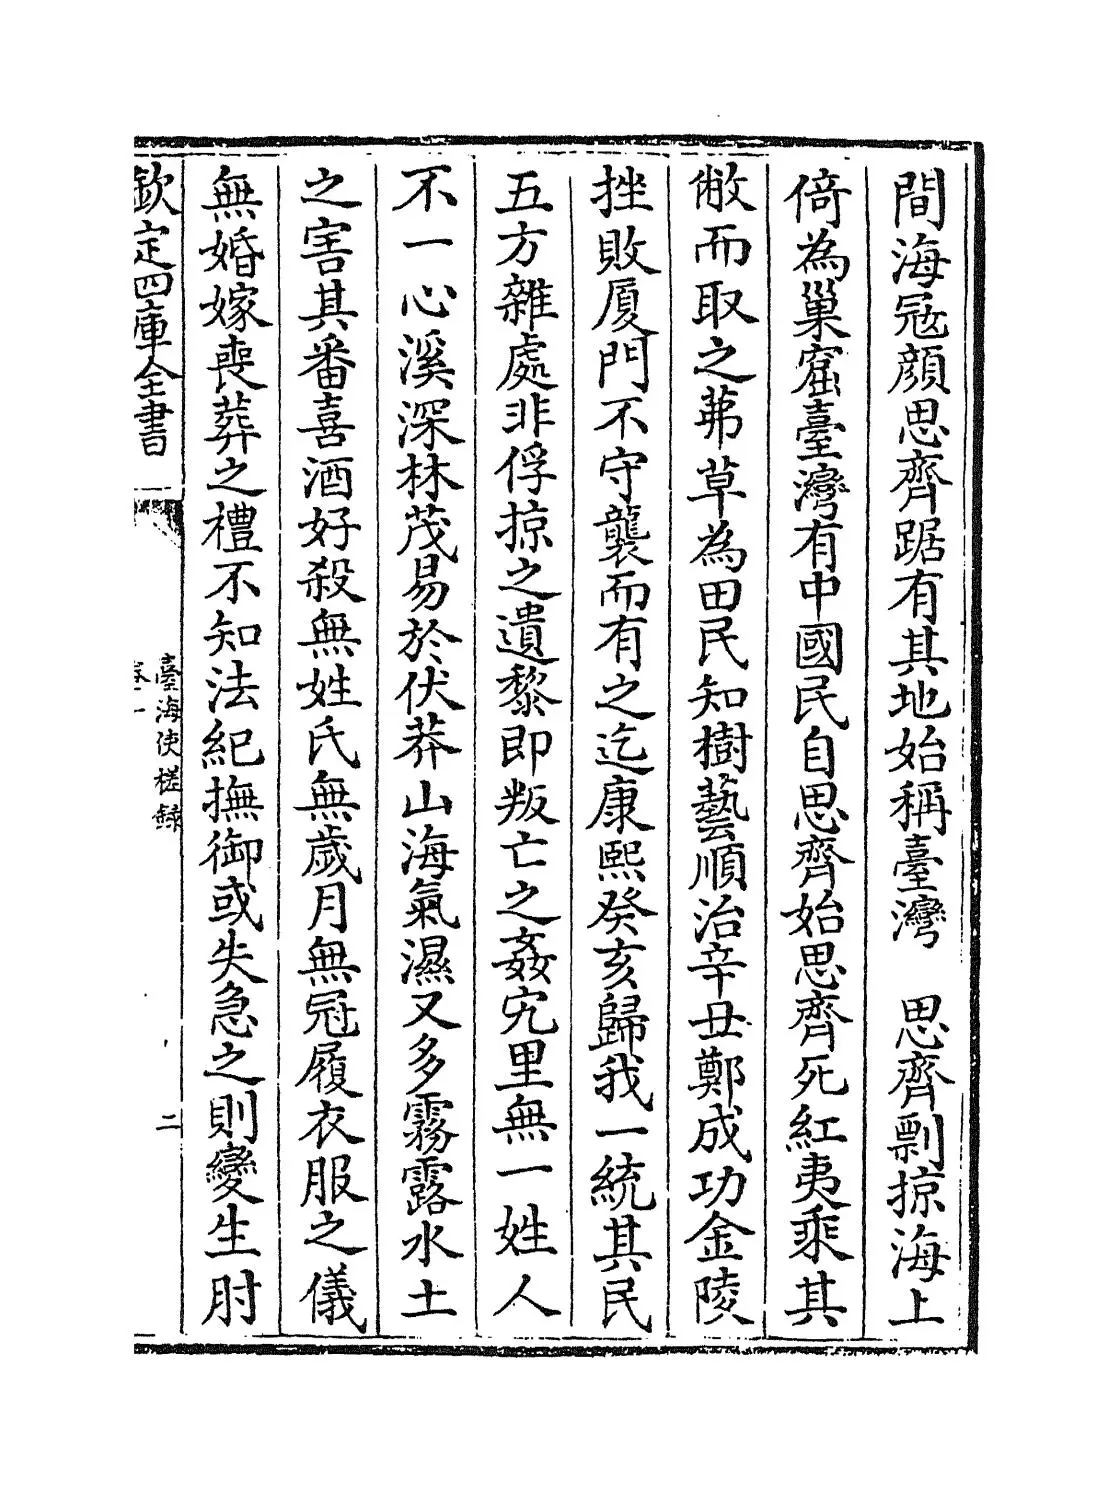 間海冦顔思齊踞有其地始稱臺灣　思齊剽掠海上
倚為巢窟臺灣有中國民自思齊始思齊死紅夷乘其
敝而取之茀草為田民知樹藝順治辛丑鄭成功金陵
挫敗厦門不守襲而有之迄康熙癸亥歸我一統其民
五方雜處非俘掠之遺黎即叛亡之姦宄里無一姓人
不一心溪深林茂易於伏莽山海氣濕又多霧露水土
之害其番喜酒好殺無姓氏無歲月無冠履衣服之儀
無婚嫁喪葬之禮不知法紀撫御或失急之則變生肘
欽定四庫全書
臺海使槎録
卷一
二